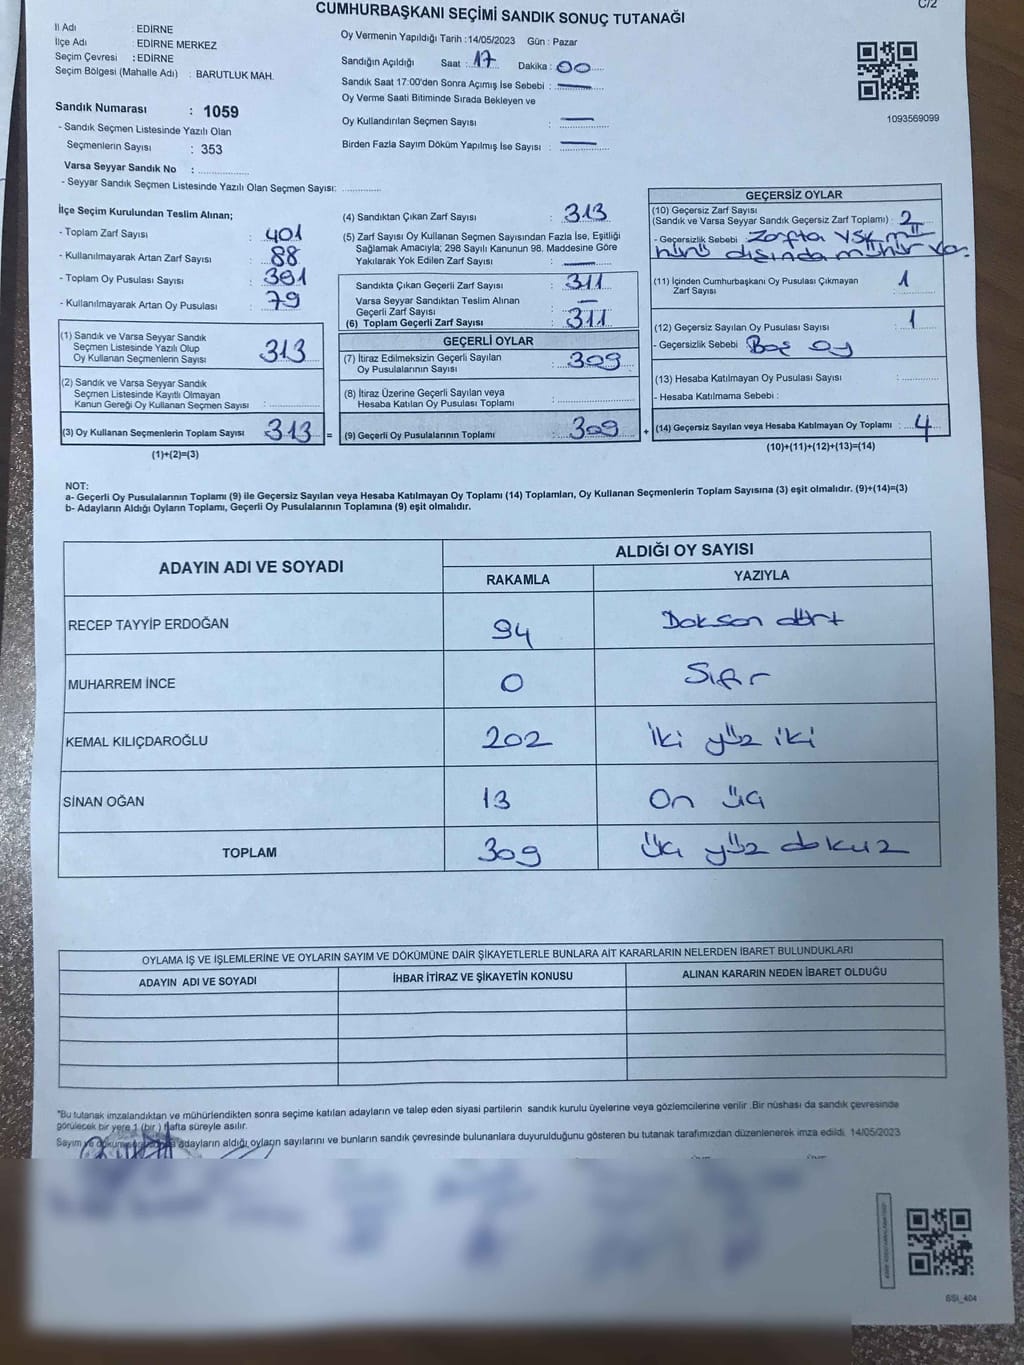 C/2
CUMHURBAŞKANI SEÇİMİ SANDIK SONUÇ TUTANAĞI
İl Adı : EDİRNE
İlçe Adı : EDİRNE MERKEZ
Seçim Çevresi : EDİRNE
Seçim Bölgesi (Mahalle Adı) : BARUTLUK MAH.
Sandık Numarası : 1059
- Sandık Seçmen Listesinde Yazılı Olan
Seçmenlerin Sayısı : 353
Varsa Seyyar Sandık No :
- Seyyar Sandık Seçmen Listesinde Yazılı Olan Seçmen Sayısı:
Oy Vermenin Yapıldığı Tarih :14/05/2023 Gün : Pazar
Sandığın Açıldığı Saat : 17 Dakika : 00
Sandık Saat 17:00'den Sonra Açımış İse Sebebi : —
Oy Verme Saati Bitiminde Sırada Bekleyen ve
Oy Kullandırılan Seçmen Sayısı : —
Birden Fazla Sayım Döküm Yapılmış İse Sayısı : —
1093569099
İlçe Seçim Kurulundan Teslim Alınan;
- Toplam Zarf Sayısı : 401
- Kullanılmayarak Artan Zarf Sayısı : 88
- Toplam Oy Pusulası Sayısı : 391
- Kullanılmayarak Artan Oy Pusulası : 79
(1) Sandık ve Varsa Seyyar Sandık
Seçmen Listesinde Yazılı Olup
Oy Kullanan Seçmenlerin Sayısı : 313
(2) Sandık ve Varsa Seyyar Sandık
Seçmen Listesinde Kayıtlı Olmayan
Kanun Gereği Oy Kullanan Seçmen Sayısı :
(3) Oy Kullanan Seçmenlerin Toplam Sayısı : 313 =
(1)+(2)=(3)
(4) Sandıktan Çıkan Zarf Sayısı : 313
(5) Zarf Sayısı Oy Kullanan Seçmen Sayısından Fazla İse, Eşitliği
Sağlamak Amacıyla; 298 Sayılı Kanunun 98. Maddesine Göre
Yakılarak Yok Edilen Zarf Sayısı : —
Sandıkta Çıkan Geçerli Zarf Sayısı : 311
Varsa Seyyar Sandıktan Teslim Alınan
Geçerli Zarf Sayısı : —
(6) Toplam Geçerli Zarf Sayısı : 311
GEÇERLİ OYLAR
(7) İtiraz Edilmeksizin Geçerli Sayılan
Oy Pusulalarının Sayısı : 309
(8) İtiraz Üzerine Geçerli Sayılan veya
Hesaba Katılan Oy Pusulası Toplamı :
(9) Geçerli Oy Pusulalarının Toplamı : 309 +
GEÇERSİZ OYLAR
(10) Geçersiz Zarf Sayısı
(Sandık ve Varsa Seyyar Sandık Geçersiz Zarf Toplamı) : 2
- Geçersizlik Sebebi : Zarfta YSK mü
hürü dışında mühür var.
(11) İçinden Cumhurbaşkanı Oy Pusulası Çıkmayan
Zarf Sayısı : 1
(12) Geçersiz Sayılan Oy Pusulası Sayısı : 1
- Geçersizlik Sebebi : Boş oy
(13) Hesaba Katılmayan Oy Pusulası Sayısı :
- Hesaba Katılmama Sebebi :
(14) Geçersiz Sayılan veya Hesaba Katılmayan Oy Toplamı : 4
(10)+(11)+(12)+(13)=(14)
NOT:
a- Geçerli Oy Pusulalarının Toplamı (9) ile Geçersiz Sayılan veya Hesaba Katılmayan Oy Toplamı (14) Toplamları, Oy Kullanan Seçmenlerin Toplam Sayısına (3) eşit olmalıdır. (9)+(14)=(3)
b- Adayların Aldığı Oyların Toplamı, Geçerli Oy Pusulalarının Toplamına (9) eşit olmalıdır.
ADAYIN ADI VE SOYADI
ALDIĞI OY SAYISI
RAKAMLA YAZIYLA
RECEP TAYYİP ERDOĞAN 94 Doksan dört
MUHARREM İNCE 0 Sıfır
KEMAL KILIÇDAROĞLU 202 İki yüz iki
SİNAN OĞAN 13 On üç
TOPLAM 309 Üç yüz dokuz
OYLAMA İŞ VE İŞLEMLERİNE VE OYLARIN SAYIM VE DÖKÜMÜNE DAİR ŞİKAYETLERLE BUNLARA AİT KARARLARIN NELERDEN İBARET BULUNDUKLARI
ADAYIN ADI VE SOYADI İHBAR İTİRAZ VE ŞİKAYETİN KONUSU ALINAN KARARIN NEDEN İBARET OLDUĞU
*Bu tutanak imzalandıktan ve mühürlendikten sonra seçime katılan adayların ve talep eden siyasi partilerin sandık kurulu üyelerine veya gözlemcilerine verilir. Bir nüshası da sandık çevresinde
görülecek bir yere 1 (bir ) hafta süreyle asılır.
Sayım ve adayların aldığı oyların sayılarını ve bunların sandık çevresinde bulunanlara duyurulduğunu gösteren bu tutanak tarafımızdan düzenlenerek imza edildi. 14/05/2023
SSI_404